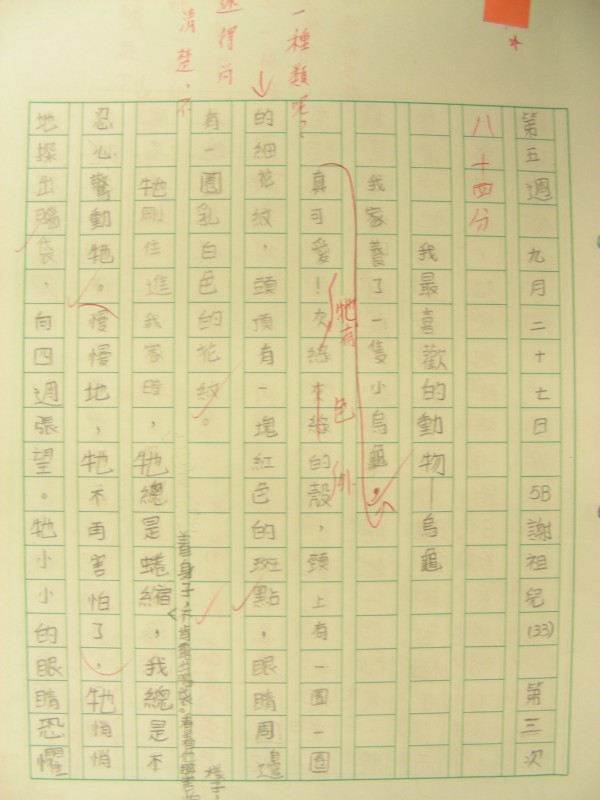 第五週 九月二十七日 5B謝祖兒(33) 第三次
八十四分
我最喜歡的動物—烏龜
我家養了一隻小烏龜，
真可愛！次綠來綠的殼，頭上有一圈一圈
牠有
色
外
一種類呢？
的細花紋，頭頂有一塊紅色的斑點，眼睛周邊
得尚
有一圈乳白色的花紋。
清楚，不
着身子，不肯露出
樣子，
牠剛住進我家時，牠總是蜷縮，我總是不
忍心驚動牠。慢慢地，牠不再害怕了，牠悄悄
地探出腦袋，向四週張望。牠小小的眼睛恐懼